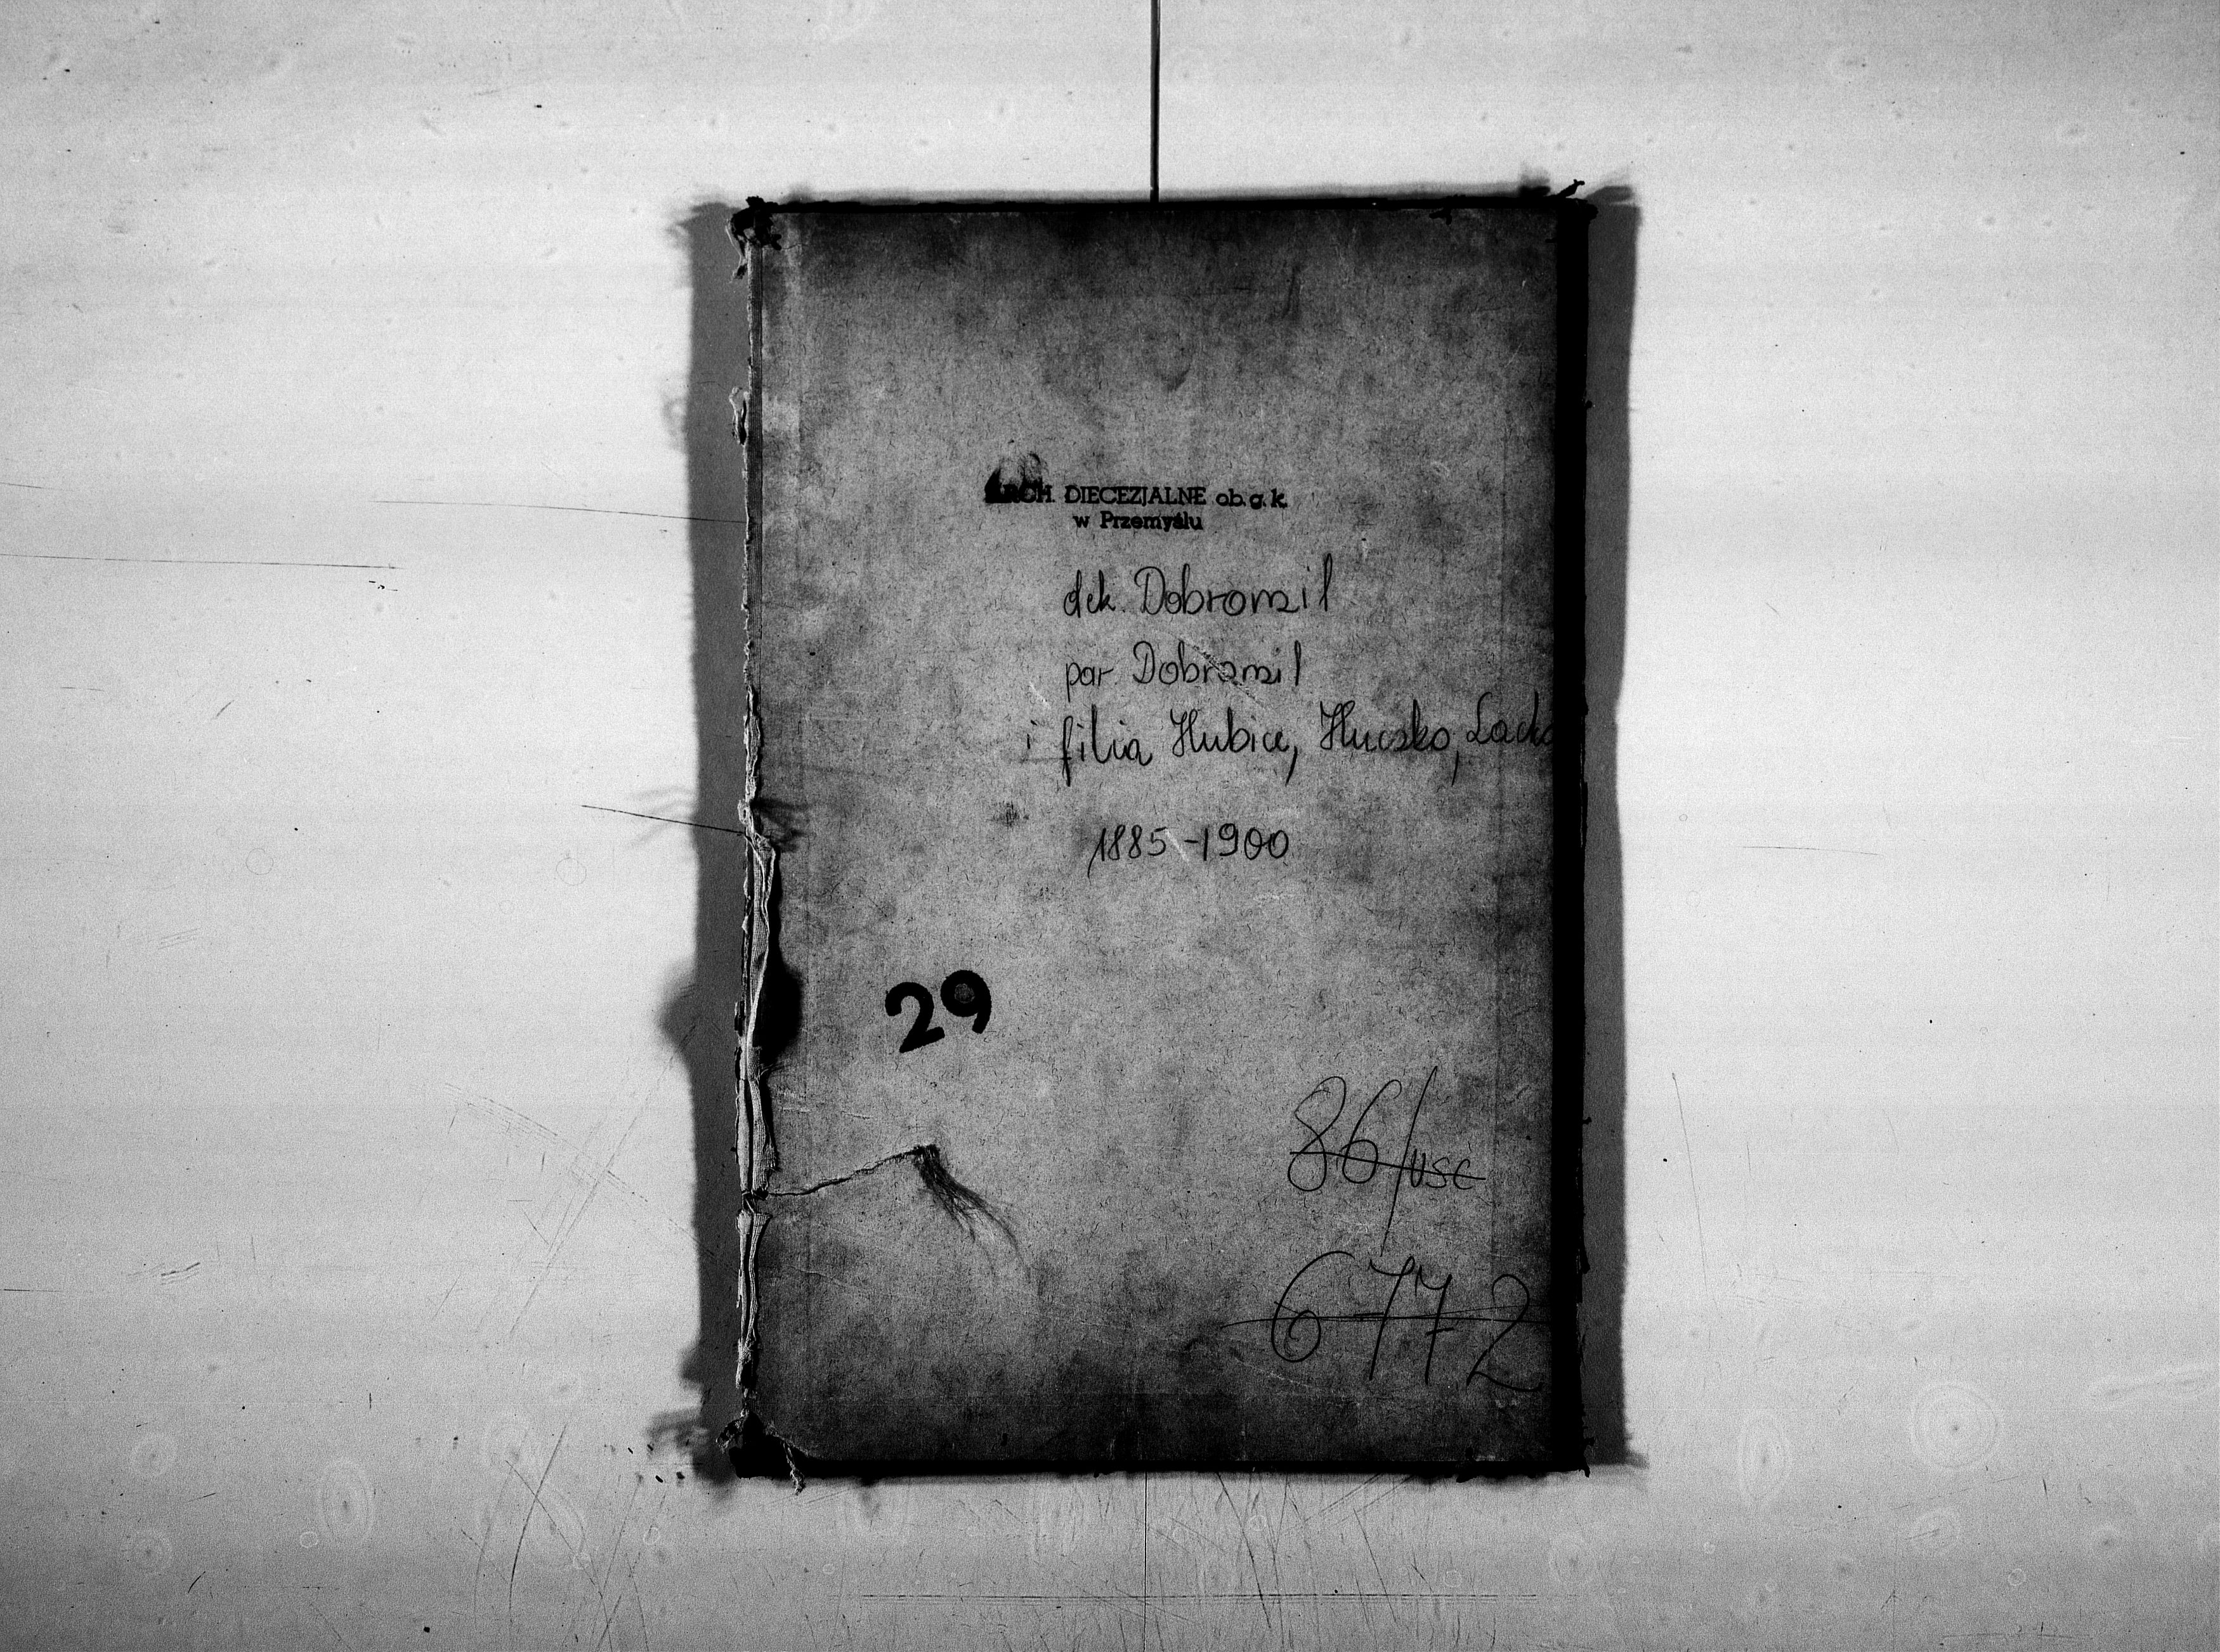 ARCH. DIECEZJALNE ob. g. k.
w Przemyślu
dek. Dobromil
par Dobromil
i filia Hubice, Huczko, Lacko
1885-1900
29
86/USC
6772